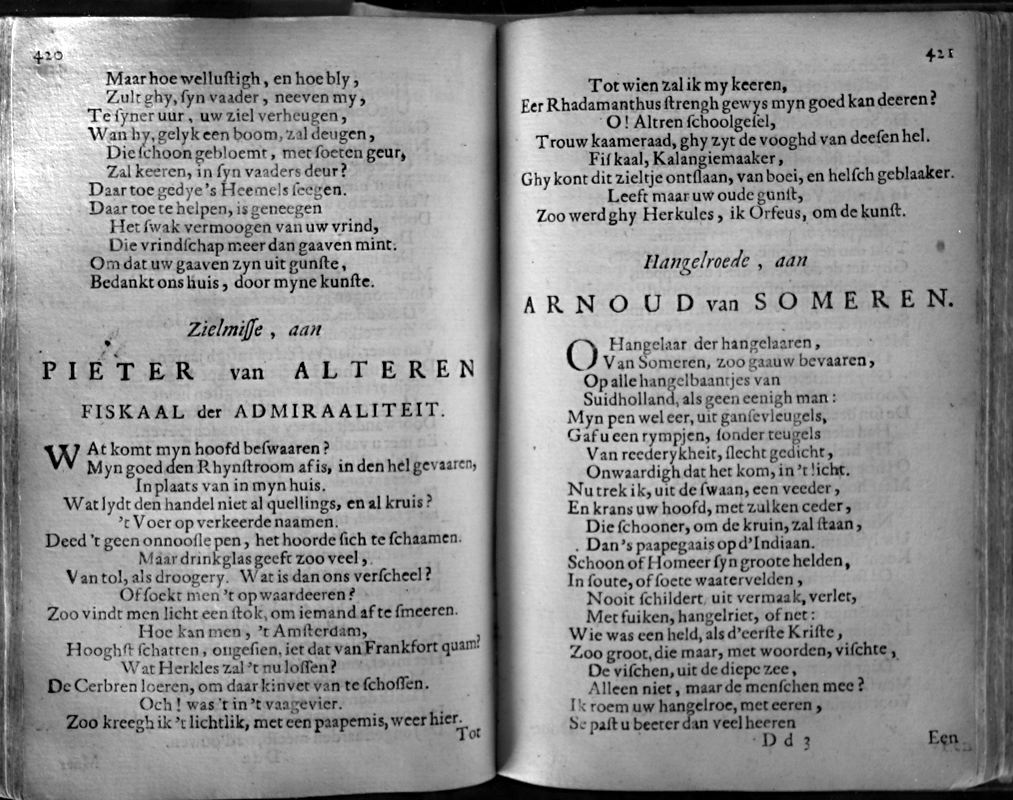 420
Maar hoe wellustigh, en hoe bly,
Zult ghy, syn vaader, neeven my,
Te syner uur, uw ziel verheugen,
Wan hy, gelyk een boom, zal deugen,
Die schoon gebloemt, met soeten geur,
Zal keeren, in syn vaaders deur?
Daar toe gedye 's Heemels seegen.
Daar toe te helpen, is geneegen
Het swak vermoogen van uw vrind,
Die vrindschap meer dan gaaven mint.
Om dat uw gaaven zyn uit gunste,
Bedankt ons huis, door myne kunste.
Zielmisse, aan
PIETER van ALTEREN
FISKAAL der ADMIRAALITEIT.
WAt komt myn hoofd beswaaren?
Myn goed den Rhynstroom af is, in den hel gevaaren,
In plaats van in myn huis.
Wat lydt den handel niet al quellings, en al kruis?
't Voer op verkeerde naamen.
Deed 't geen onnoosle pen, het hoorde sich te schaamen.
Maar drinkglas geeft zoo veel,
Van tol, als droogery. Wat is dan ons verscheel?
Of soekt men 't op waardeeren?
Zoo vindt men licht een stok, om iemand af te smeeren.
Hoe kan men, 't Amsterdam,
Hooghst schatten, ongesien, iet dat van Frankfort quam?
Wat Herkles zal 't nu lossen?
De Cerbren loeren, om daar kinvet van te schossen.
Och! was 't in 't vaagevier.
Zoo kreegh ik 't lichtlik, met een paapemis, weer hier.
Tot
421
Tot wien zal ik my keeren,
Eer Rhadamanthus strengh gewys myn goed kan deeren?
O! Altren schoolgesel,
Trouw kaameraad, ghy zyt de vooghd van deesen hel.
Fiskaal, Kalangiemaaker,
Ghy kont dit zieltje ontslaan, van boei, en helsch geblaaker.
Leeft maar uw oude gunst,
Zoo werd ghy Herkules, ik Orfeus, om de kunst.
Hangelroede, aan
ARNOUD van SOMEREN.
O Hangelaar der hangelaaren,
Van Someren, zoo gaauw bevaaren,
Op alle hangelbaantjes van
Suidholland, als geen eenigh man:
Myn pen wel eer, uit gansevleugels,
Gaf u een rympjen, sonder teugels
Van reederykheit, slecht gedicht,
Onwaardigh dat het kom, in 't licht.
Nu trek ik, uit de swaan, een veeder,
En krans uw hoofd, met zulken ceder,
Die schooner, om de kruin, zal staan,
Dan 's paapegaais op d'Indiaan.
Schoon of Homeer syn groote helden,
In soute, of soete waatervelden,
Nooit schildert, uit vermaak, verlet,
Met fuiken, hangelriet, of net:
Wie was een held, als d'eerste Kriste,
Zoo groot, die maar, met woorden, vischte,
De vischen, uit de diepe zee,
Alleen niet, maar de menschen mee?
Ik roem uw hangelroe, met eeren,
Se past u beeter dan veel heeren
D d 3
Een